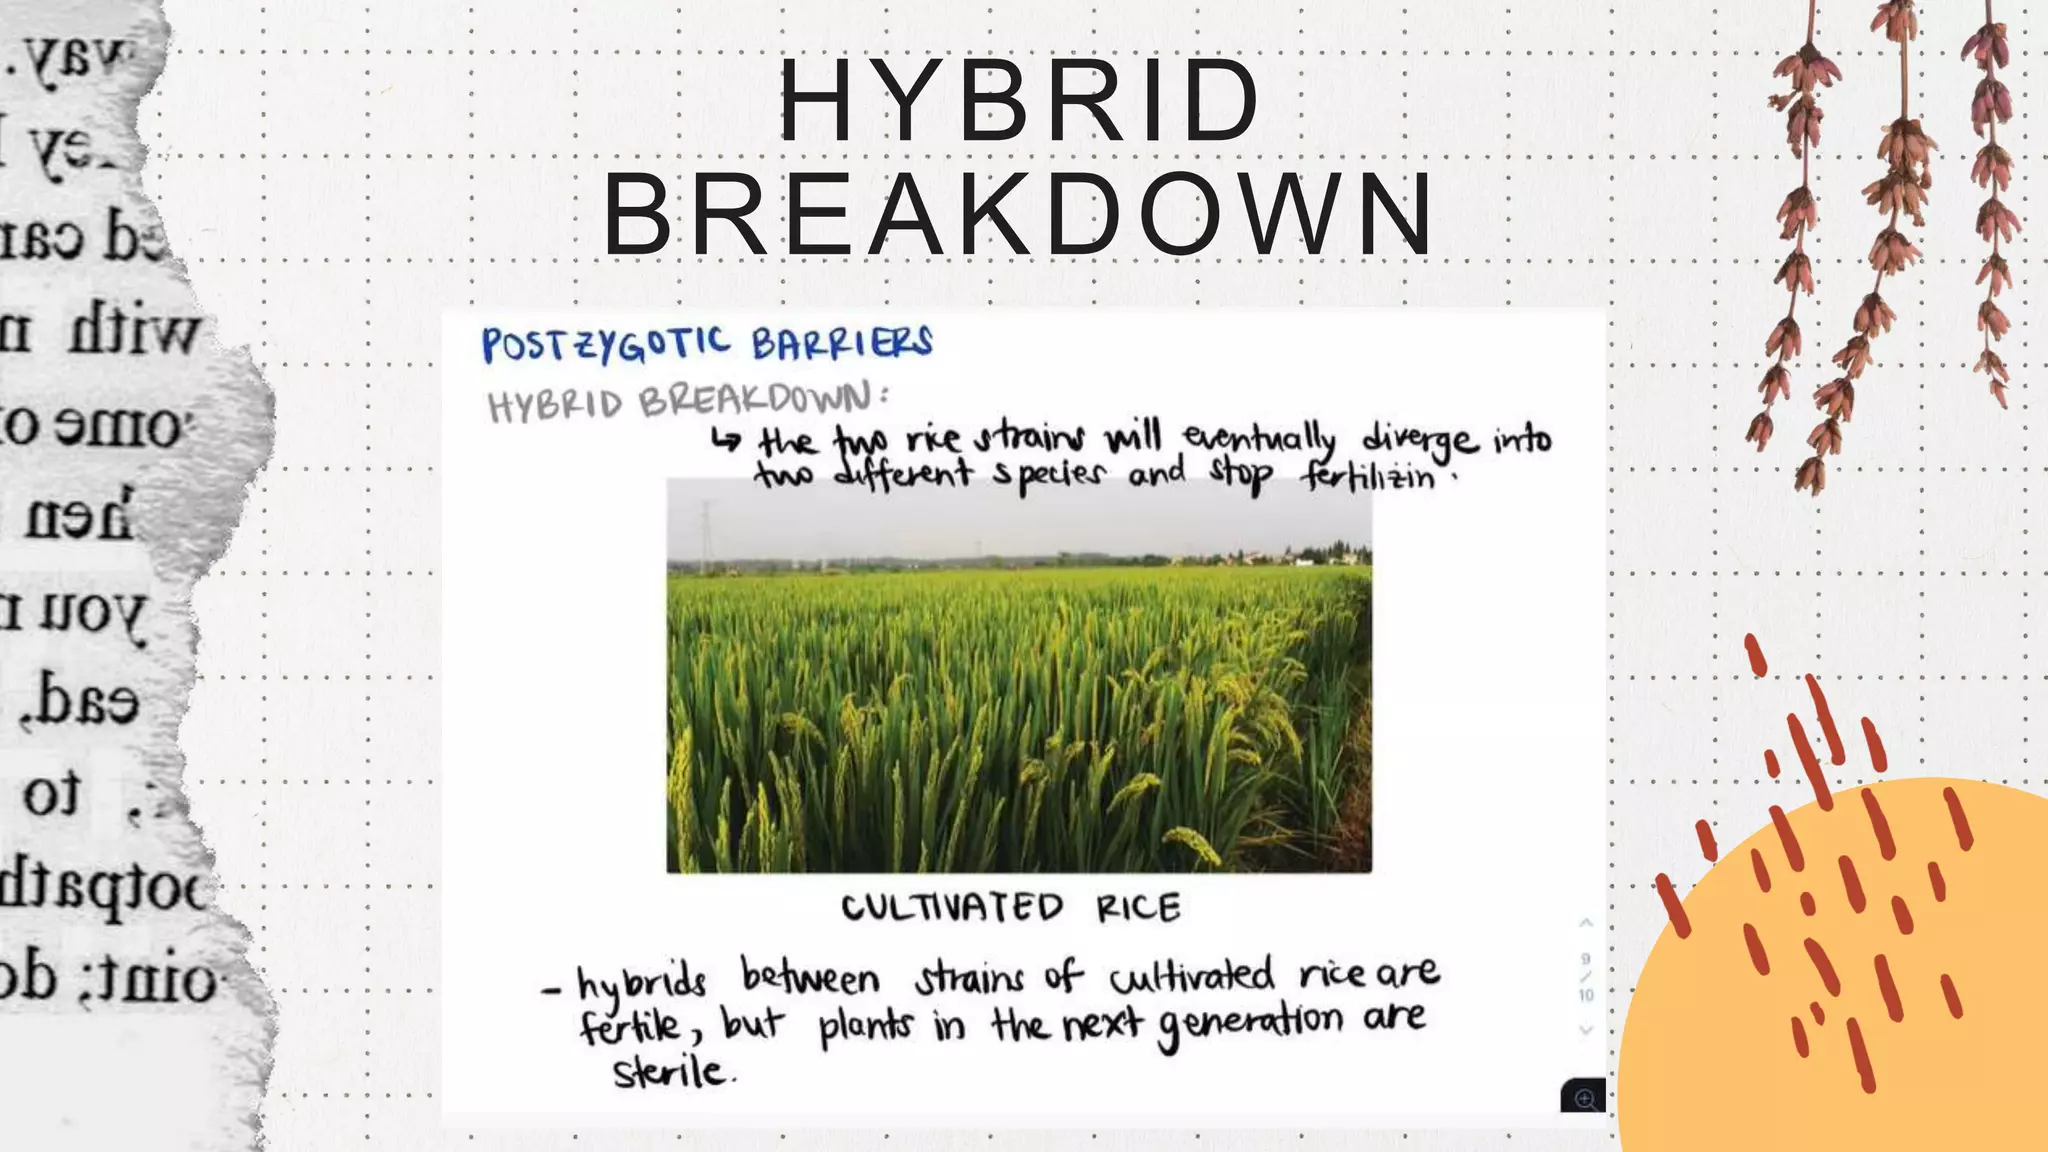 HYBRID
BREAKDOWN
POSTZYGOTIC BARRIERS
HYBRID BREAKDOWN:
↳ the two rice strains will eventually diverge into
two different species and stop fertilizin.
CULTIVATED RICE
- hybrids between strains of cultivated rice are
fertile, but plants in the next generation are
sterile.
9
/
10
way.
with
you
to